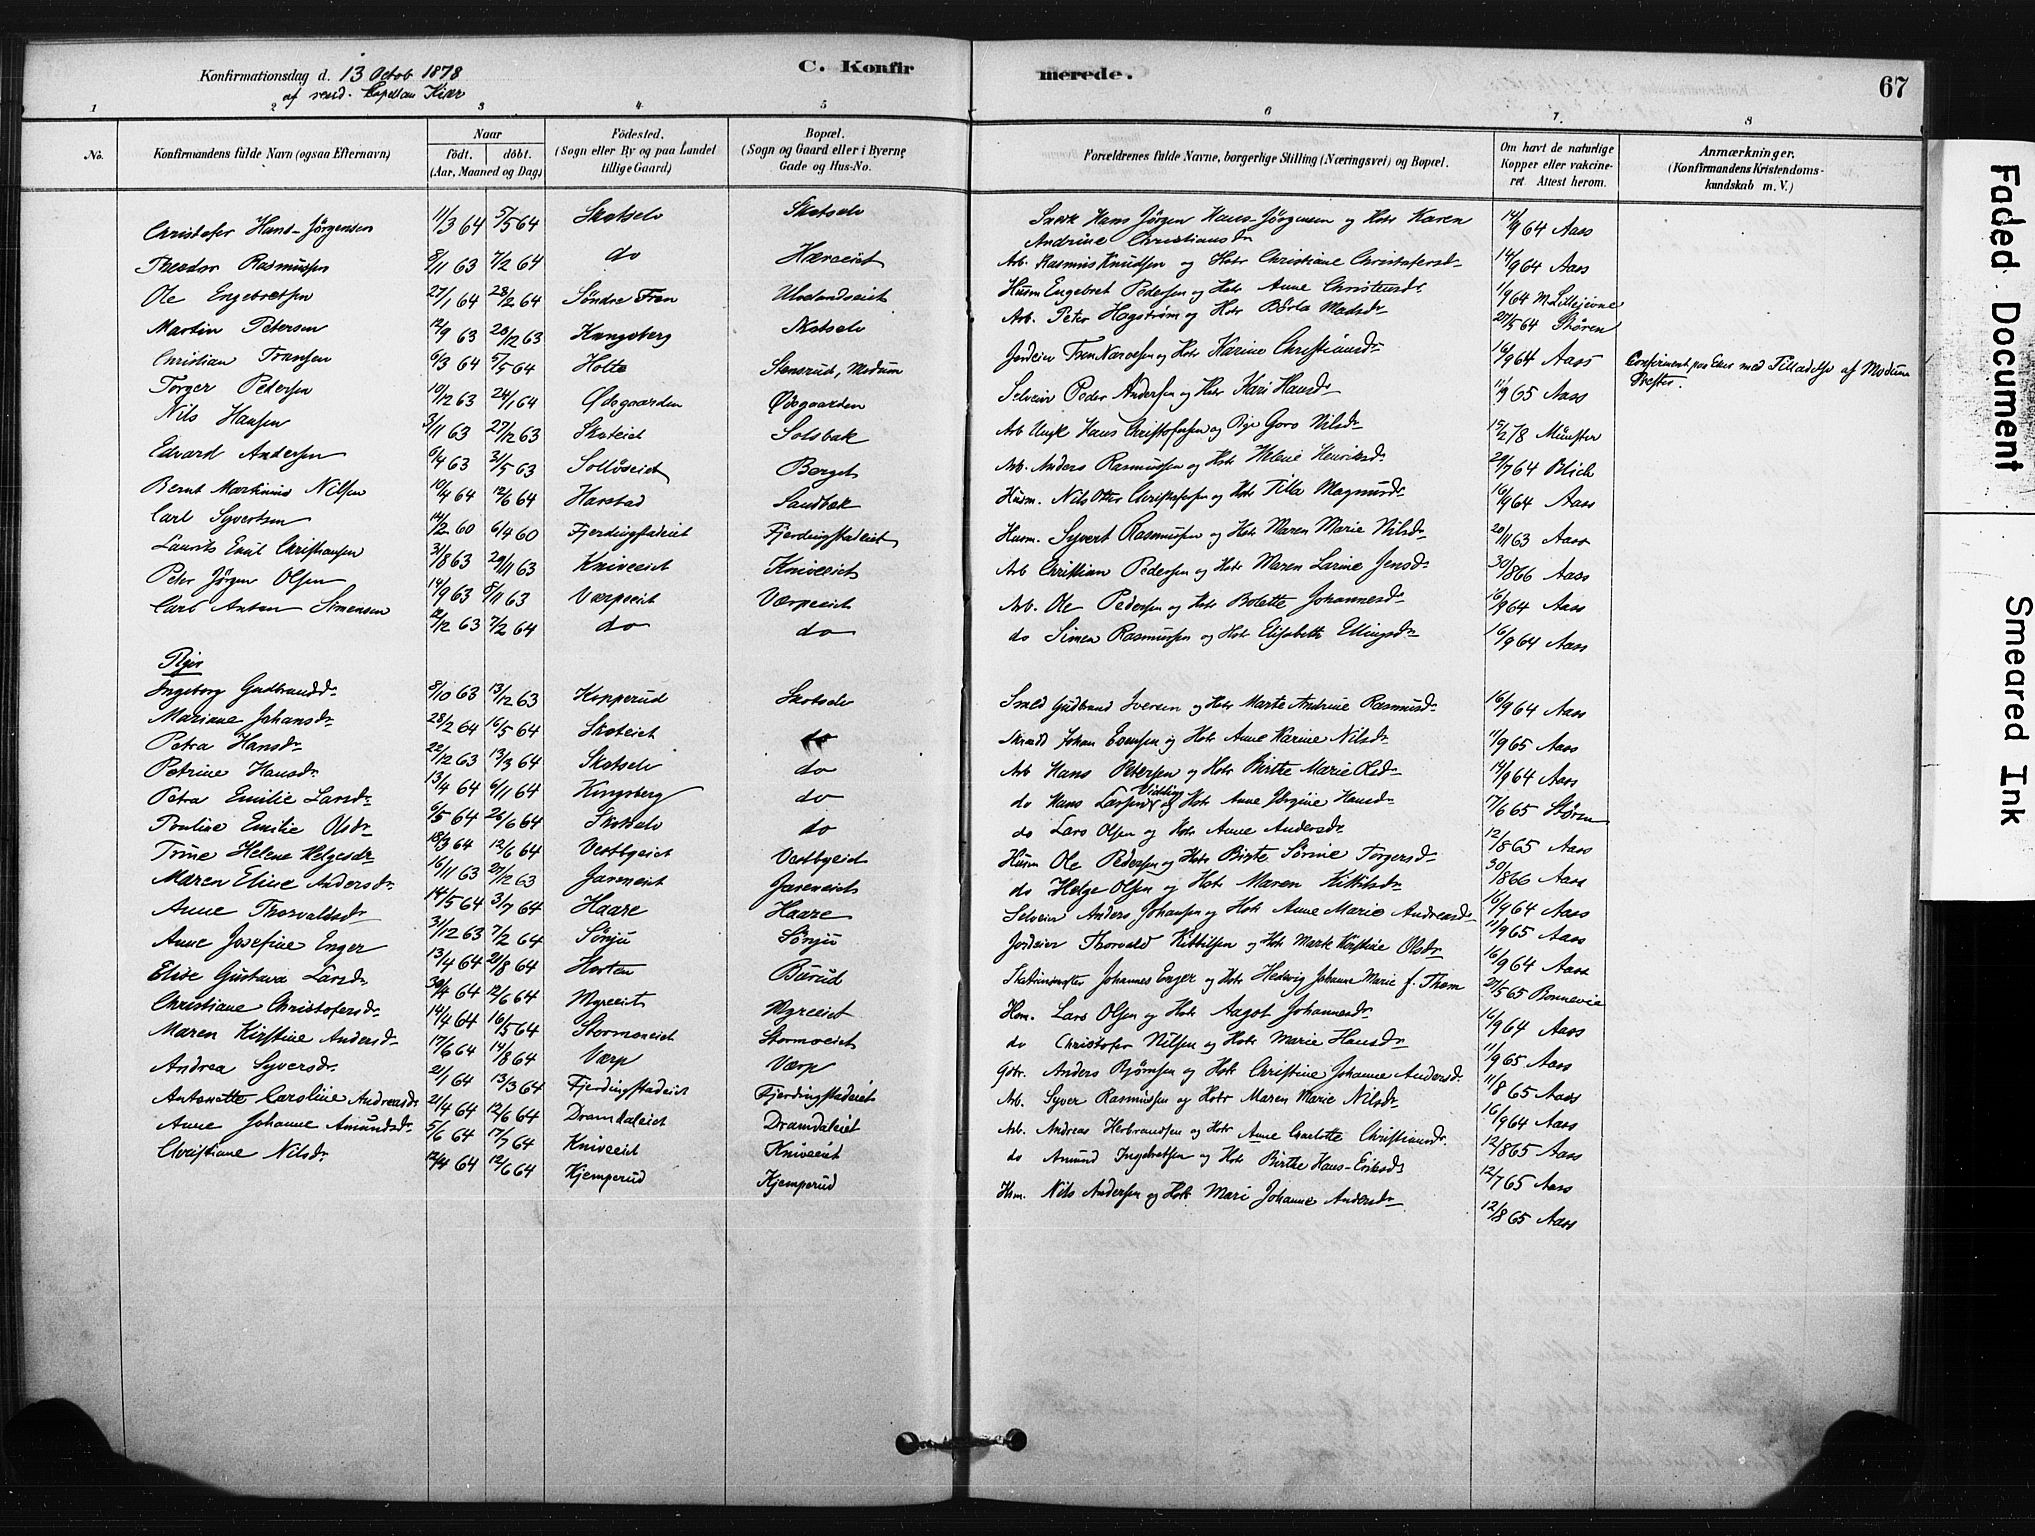 Konfirmationsdag d. 13 Octob 1878 C. Konfirmerede. 67
af resid. Capellan Kiær
1 2 3 4 5 6 7. 8
No. Konfirmandens fulde Navn (ogsaa Efternavn) Naar født. døbt. (Aar, Maaned og Dag) Födested. (Sogn eller By og paa Landet tillige Gaard) Bopæl. (Sogn og Gaard eller i Byerne Gade og Hus-No. Forældrenes fulde Navne, borgerlige Stilling (Næringsvei) og Bopæl. Om havt de naturlige Kopper eller vakcineret. Attest herom. Anmærkninger. (Konfirmandens Kristendomskundskab m. V.)
Christofer Hans-Jörgensen 11/3 64 5/5 64 Skotselv Skotselv Hans Jörgen Hans-Jörgensen og Hstr Karen Andrine Christiansdr 14/9 64 Aass
Theodor Rasmussen 8/11 63 7/2 64 do Hæreeiet Arb. Rasmus Knudsen og Hstr Christiane Christofersdr 14/9 64 Aass
Ole Engebretsen 27/1 64 28/2 64 Söndre Fren Ulvelandseiet Husm Engebret Pedersen og Hstr Anne Christensdr 1/9 64 M. Lilleievne
Martin Petersen 12/9 63 28/12 63 Kongsberg Skotselv Arb. Peter Hagström og Hstr Bærta Madsdr 27/5 64 Stören
Christian Fransen 6/3 64 5/5 64 Holte Stensrud, Modum Jordeier Fren Narvesen og Hstr Karine Christiansdr 16/9 64 Aass Confirmeret paa Eker med Tilladelse af Modums Præster.
Torger Pedersen 10/12 63 24/1 64 Ødegaarden Ødegaarden Selveier Peder Andersen og Hstr Kari Hansdr 11/9 65 Aass
Nils Hansen 3/11 63 27/12 63 Skoteiet Solsbak Arb Ungk Hans Christofersen og Pige Goro Nilsdr 15/2 78 Münster
Edvard Andersen 6/4 63 31/5 63 Solløseiet Berget Arb. Anders Rasmussen og Hstr Helene Henriksdr 29/7 64 Blich
Bernt Martinius Nilsen 10/4 64 12/6 64 Harstad Sandbæk Husm. Nils Otter Christofersen og Hstr Tilla Magnusdr 16/9 64 Aass
Carl Syvertsen 14/2 60 6/4 60 Fjerdingstadeiet Fjerdingstadeiet Husm. Syvert Rasmussen og Hstr Maren Marie Nilsdr 20/11 63 Aass
Laurits Emil Christiansen 31/8 63 29/11 63 Kniveeiet Kniveeiet Arb Christian Pedersen og Hstr Maren Larine Jensdr 30/8 66 Aass
Peter Jörgen Olsen 14/9 63 8/11 63 Værpeeiet Værpeeiet Arb. Ole Pedersen og Hstr Bolette Johannesdr 16/9 64 Aass
Carl Anton Simensen 12/12 63 7/2 64 do do do Simen Rasmussen og Hstr Elisabeth Ellingsdr 16/9 64 Aass
Piger
Ingeborg Gudbrandsdr 8/10 63 13/12 63 Kopperud Skotselv Gudbrand Iversen og Hstr Marte Andrine Rasmusdr 16/9 64 Aass
Mariane Johansdr 28/2 64 16/5 64 Skoteiet do Skrædd Johan Evensen og Hstr Anne Karine Nilsdr 11/9 65 Aass
Petra Hansdr 22/12 63 13/3 64 Skotselv do Arb Hans Petersen og Hstr Birthe Marie Olsdr 14/9 64 Aass
Petrine Hansdr 13/4 64 6/11 64 Kongsberg do do Hans Larsen og Hstr Anne Jörgine Hansdr 7/6 65 Stören
Petra Emilie Larsdr 6/5 64 26/6 64 Skotselv do do Lars Olsen og Hstr Anne Andersdr 12/8 65 Aass
Pauline Emilie Olsdr 18/3 64 12/6 64 Vestbyeiet Vestbyeiet Husm Ole Pedersen og Hstr Birte Sörine Torgersdr 30/8 66 Aass
Trine Helene Helgesdr 16/11 63 27/12 63 Jareneiet Jareneiet do Helge Olsen og Hstr Maren Kittilsdr 16/9 64 Aass
Maren Eline Andersdr 14/5 64 3/7 64 Haare Haare Selveier Anders Johansen og Hstr Anne Marie Andreasdr 11/9 65 Aass
Anne Thorvaldsdr 3/12 63 7/2 64 Sönju Sönju Jordeier Thorvald Kittilsen og Hstr Marte Kirstine Olsdr 16/9 64 Aass
Anne Josefine Enger 13/4 64 21/8 64 Horten Burud Johannes Enger og Hstr Hedevig Johanne Marie f. Thom 27/5 65 Bonnevie
Elise Gustava Larsdr 30/4 64 12/6 64 Myreeiet Myreeiet Hsm. Lars Olsen og Hstr Aagot Johannesdr 16/9 64 Aass
Christiane Christofersdr 14/4 64 16/5 64 Stormoeiet Stormoeiet do Christofer Nilsen og Hstr Marie Hansdr 11/9 65 Aass
Maren Kirstine Andersdr 17/6 64 14/8 64 Værp Værp Gbr. Anders Bjørnsen og Hstr Christine Johanne Andersdr 11/8 65 Aass
Andrea Syversdr 21/1 64 13/3 64 Fjerdingstadeiet Fjerdingstadeiet Arb. Syver Rasmussen og Hstr Maren Marie Nilsdr 16/9 64 Aass
Antonette Caroline Andreasdr 21/4 64 12/6 64 Dramdaleiet Dramdaleiet Arb. Andreas Herbrandsen og Hstr Anne Charlotte Christiansdr. 12/8 65 Aass
Anne Johanne Amundsdr 5/6 64 17/7 64 Kniveeiet Kniveeiet do Amund Ingebretsen og Hstr Birthe Hans-Eriksdr 12/7 65 Aass
Christiane Nilsdr 12/4 64 12/6 64 Kjemperud Kjemperud Hsm. Nils Andersen og Hstr Mari Johanne Andersdr 12/8 65 Aass
Faded Document
Smeared Ink